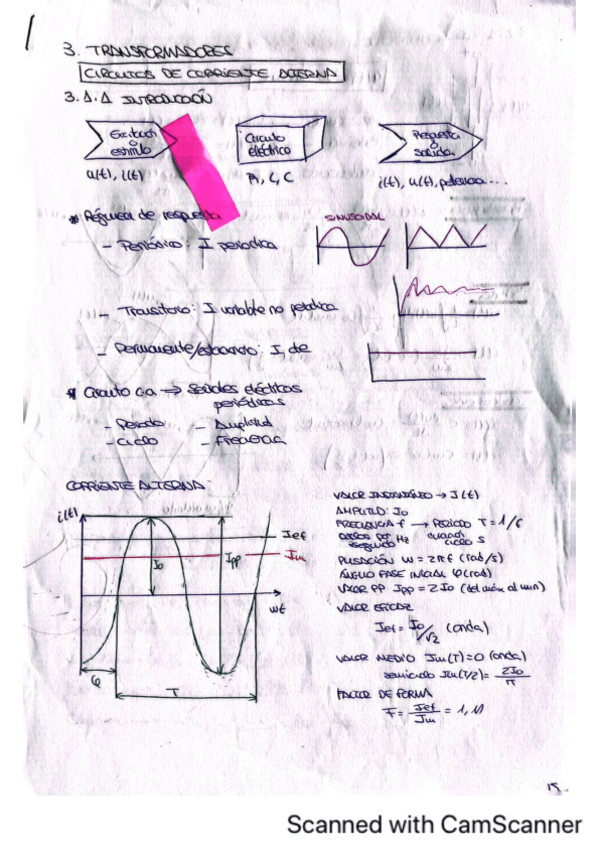 3. TRANSFORMADORES
CIRCUITOS DE CORRIENTE ALTERNA
3.1.1 INTRODUCCIÓN
Excitación o estímulo
Circuito eléctrico
Respuesta o salida
u(t), i(t)
R, L, C
i(t), u(t), potencia...
* Régimen de respuesta
SINUSOIDAL
- Periódico: I periodica
- Transitorio: I variable no periodica
- Permanente/estacionario: I de
* Circuito c.a → Señales eléctricas
periódicas
- Periodo - Amplitud
- Ciclo - Frecuencia
CORRIENTE ALTERNA:
i(t)
Ief
Im
Io
Ipp
wt
φ
T
VALOR INSTANTÁNEO → I(t)
AMPLITUD: Io
FRECUENCIA f → PERIODO T = 1/f
ciclos por segundo Hz
ciclo s
PULSACIÓN w = 2πf (rad/s)
ÁNGULO FASE INICIAL φ(rad)
VALOR PP Ipp = 2Io (del máx al min)
VALOR EFICAZ
Ief = Io/√2 (onda)
VALOR MEDIO Im(T)=0 (onda)
semiciclo Im(T/2) = 2Io/π
FACTOR DE FORMA
F = Ief/Im = 1,11
15
Scanned with CamScanner